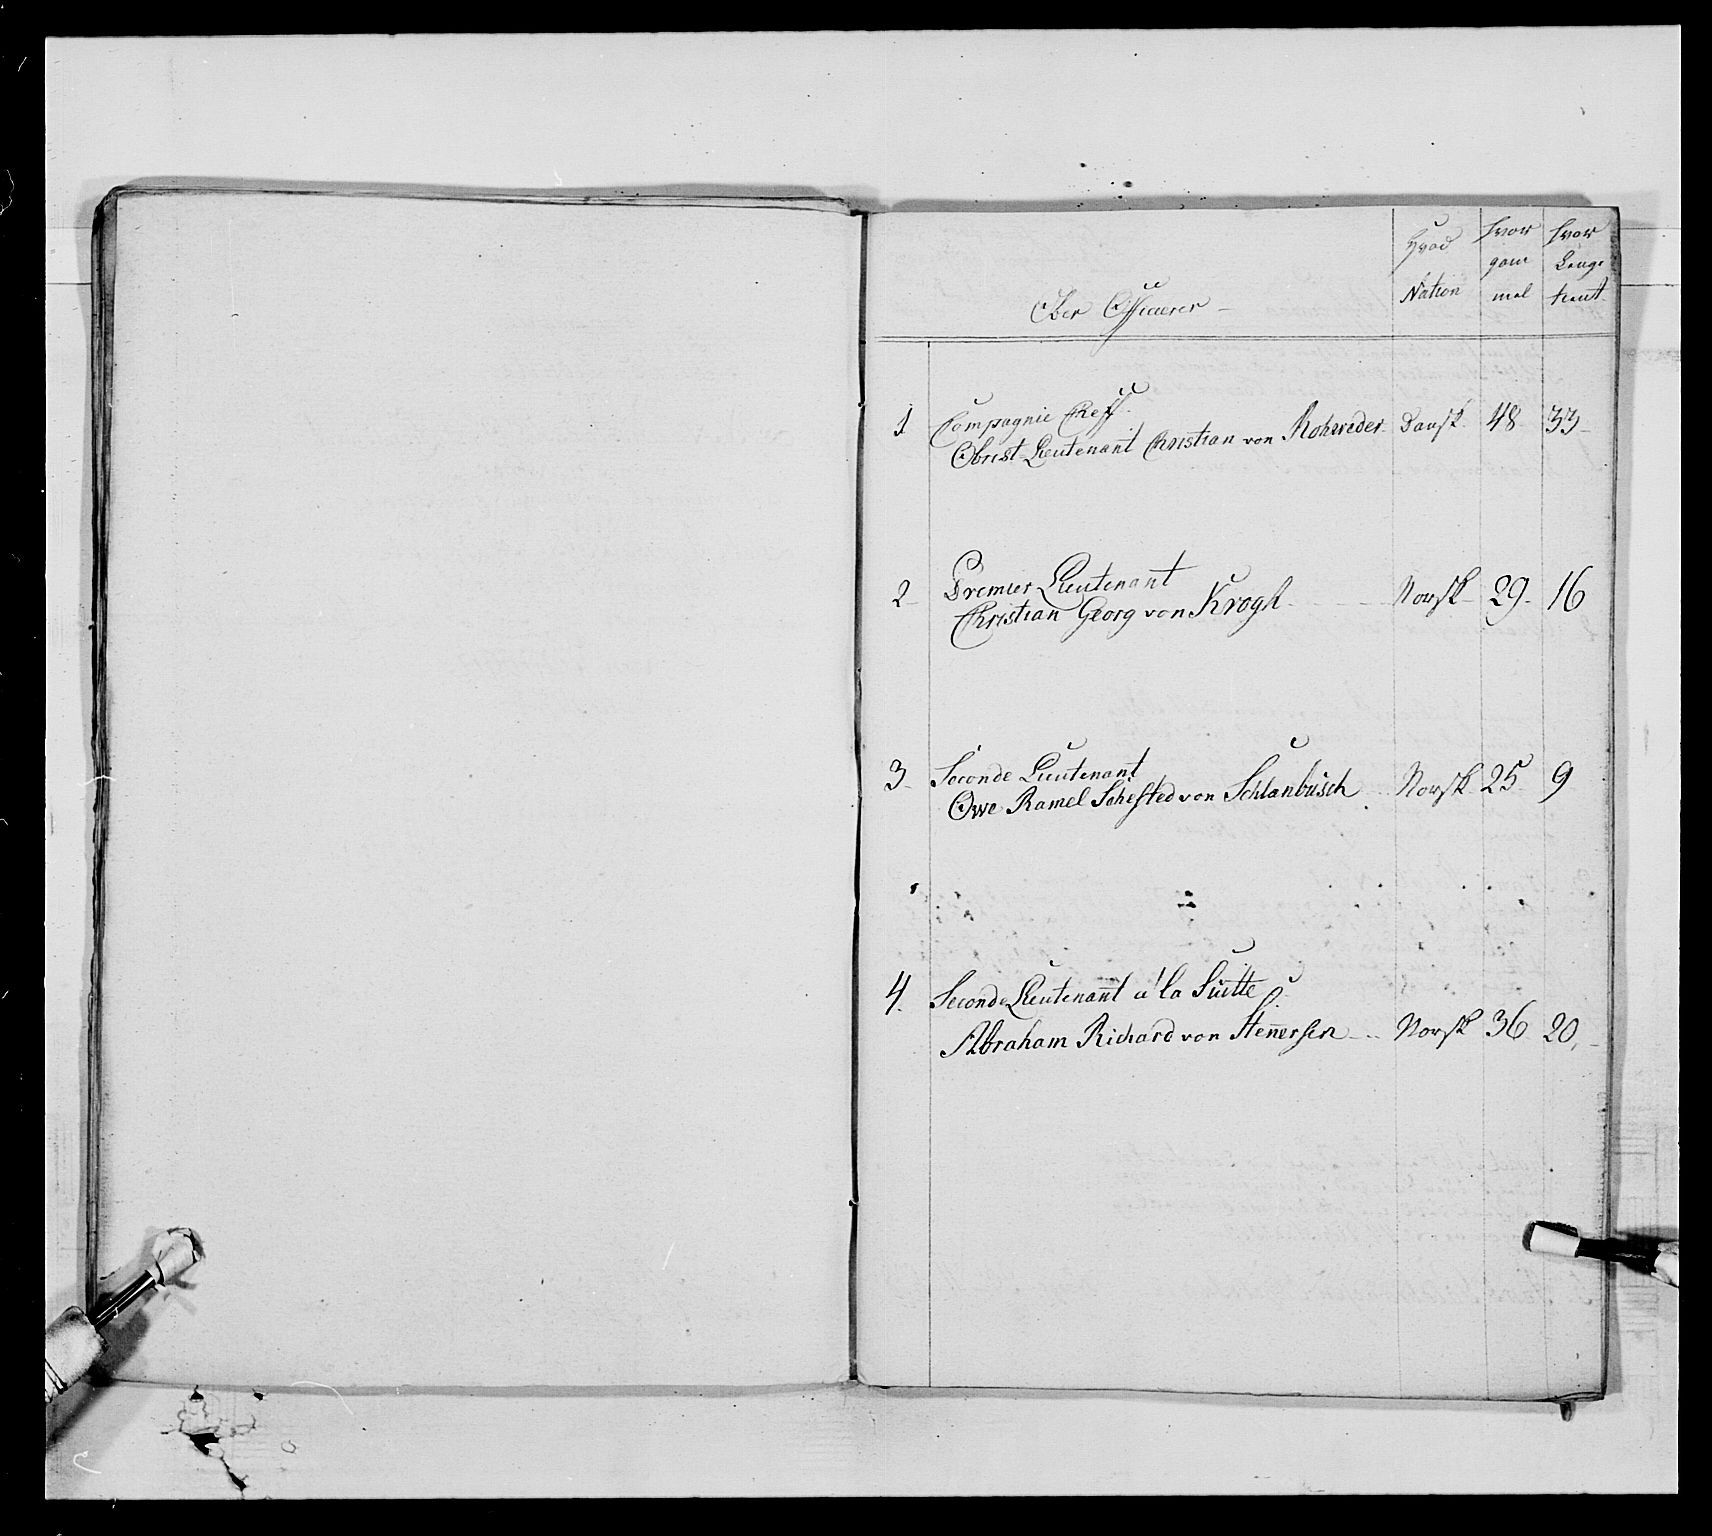 Ober Officerer
Hvad Nation
hvor gam mel
hvor Længe tient
1 Compagnie Cheff.
Obrist Lieutenant Christian von Rohweder Dansk 48 33
2 Premier Lieutenant
Christian Georg von Krogh Norsk 29 16
3 Seconde Lieutenant
Owe Ramel Sehested von Schlanbusch Norsk 25 9
4. Seconde Lieutenant a' la Suitte
Abraham Richard von Stenersen Norsk 36 20